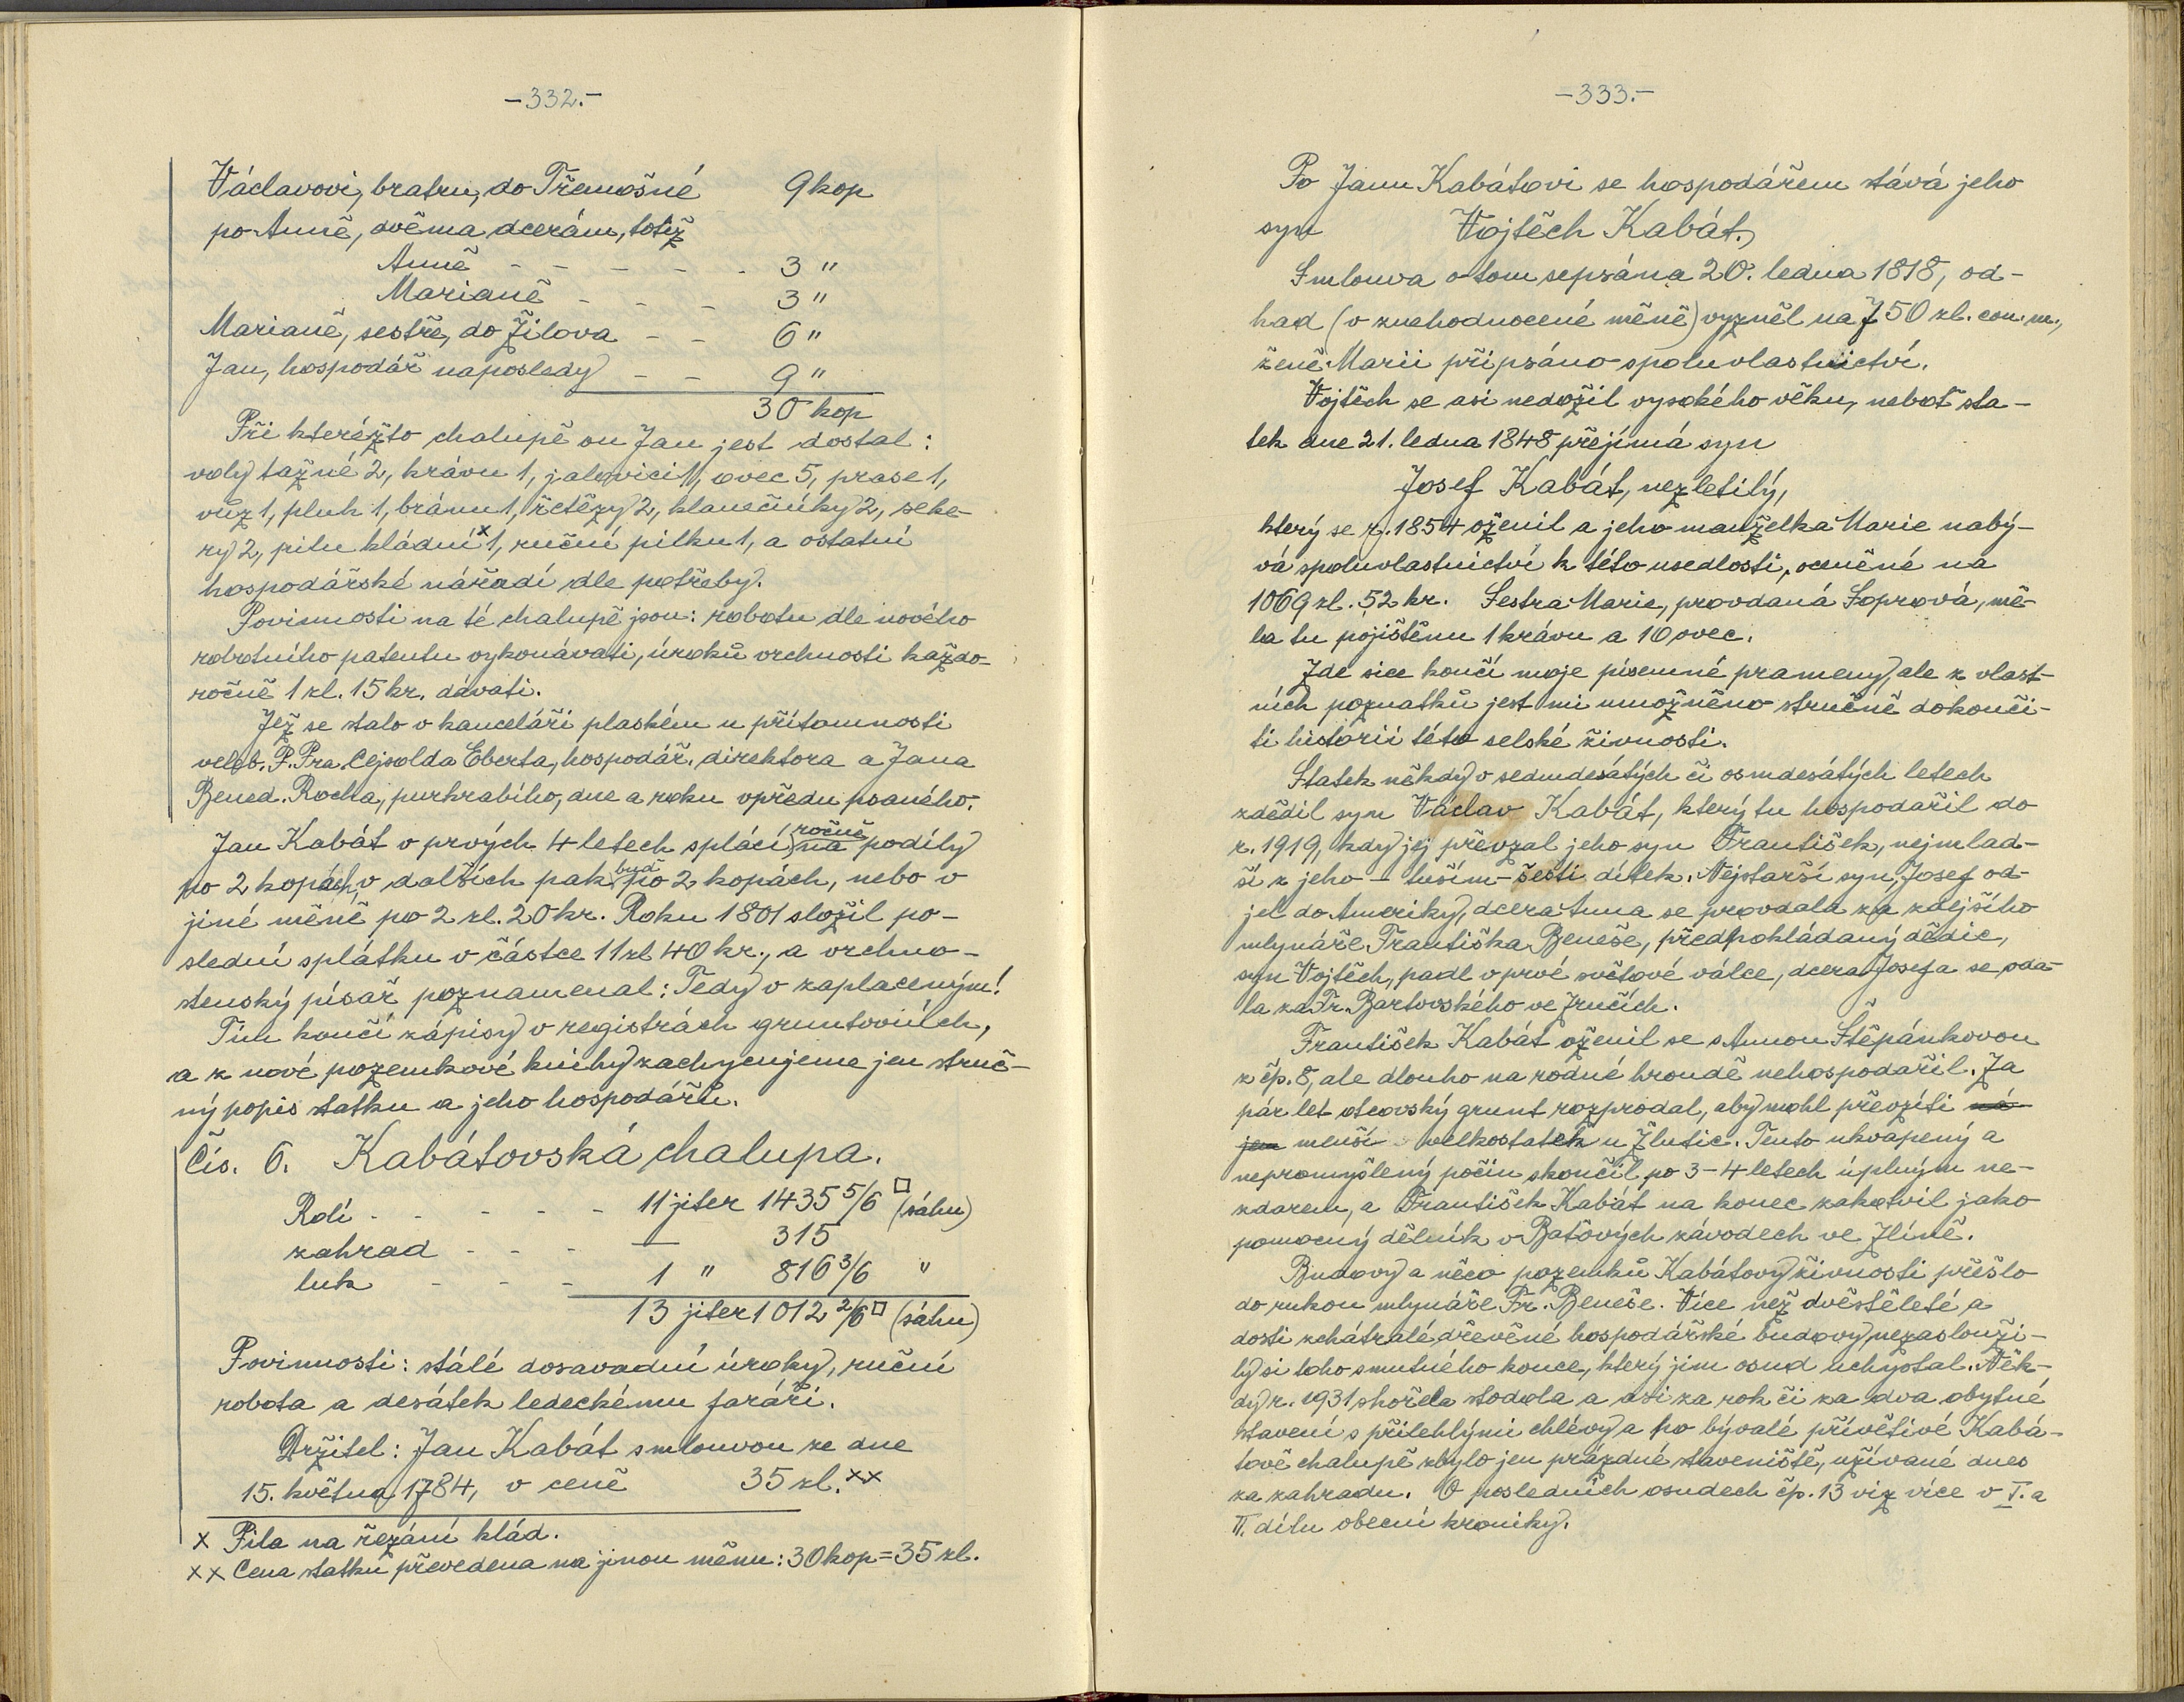 -332.-
Václavovi, bratru, do Třemošné 9 kop
po Anně, dvěma dcerám, totiž
Anně - - - - - 3 "
Marianě - - - 3 "
Marianě, sestře, do Žilova - - 6 "
Jan, hospodář naposledy - - 9 "
30 kop
Při kterézto chalupě on Jan jest dostal:
voly tažné 2, krávu 1, jalovici 1, ovec 5, prase 1,
vůz 1, pluh 1, bránu 1, řetězy 2, klanečníky 2, seke-
ry 2, pilu kládní x 1, ruční pilku 1, a ostatní
hospodářské nářadí dle potřeby.
Povinnosti na té chalupě jsou: robotu dle nového
robotního patentu vykonávati, úroků vrchnosti každo-
ročně 1 zl. 15 kr. dávati.
Jež se stalo v kanceláři plaském u přítomnosti
veleb. P. Pra Cejsolda Eberta, hospodář. direktora a Jana
Bened. Rocha, purkrabího, dne a roku vpředu psaného.
Jan Kabát v prvých 4 letech splácí ročně na podíly
po 2 kopách, v dalších pak buď po 2 kopách, nebo v
jiné měně po 2 zl. 20 kr. Roku 1801 složil po-
slední splátku v částce 11 zl 40 kr., a vrchno-
stenský písař poznamenal: Tedy v zaplaceným!
Tím končí zápisy v registrách gruntovních,
a z nové pozemkové knihy zachycujeme jen struč-
ný popis statku a jeho hospodářů.
Čís. 6. Kabátovská chalupa.
Rolí - - - - - 11 jiter 1435 5/6 □ (sáhu)
zahrad - - - — 315
luk - - - 1 " 816 3/6 "
13 jiter 1012 2/6 □ (sáhu)
Povinnosti: stálé dosavadní úroky, ruční
robota a desátek ledeckému faráři.
Držitel: Jan Kabát smlouvou ze dne
15. května 1784, v ceně 35 zl. xx
x Pila na řezání klád.
xx Cena statku převedena na jinou měnu: 30 kop = 35 zl.
-333.-
Po Janu Kabátovi se hospodářem stává jeho
syn Vojtěch Kabát.
Smlouva o tom sepsána 20. ledna 1818, od-
had (v znehodnocené měně) vyzněl na 750 zl. con. m.,
ženě Marii připsáno spoluvlastnictví.
Vojtěch se asi nedožil vysokého věku, neboť sta-
tek dne 21. ledna 1848 přejímá syn
Josef Kabát, nezletilý,
který se r. 1854 oženil a jeho manželka Marie nabý-
vá spoluvlastnictví k této usedlosti, oceněné na
1069 zl. 52 kr. Sestra Marie, provdaná Soprová, mě-
la tu pojištěnu 1 krávu a 10 ovec.
Zde sice končí moje písemné prameny, ale z vlast-
ních poznatků jest mi umožněno stručně dokonči-
ti historii této selské živnosti.
Statek někdy v sedmdesátých či osmdesátých letech
zdědil syn Václav Kabát, který tu hospodařil do
r. 1919, kdy jej převzal jeho syn František, nejmlad-
ší z jeho - tuším - šesti dítek. Nejstarší syn, Josef od-
jel do Ameriky, dcera Anna se provdala za zdejšího
mlynáře Františka Beneše, předpokládaný dědic,
syn Vojtěch, padl v prvé světové válce, dcera Josefa se vda-
la za Fr. Bartovského ve Zručích.
František Kabát oženil se s Annou Štěpánkovou
z čp. 8, ale dlouho na rodné hroudě nehospodařil. Za
pár let otcovský grunt rozprodal, aby mohl převzíti ná
jem menší velkostatek u Žlutic. Tento ukvapený a
nepromyšlený počin skončil po 3-4 letech úplným ne-
zdarem, a František Kabát na konec zakotvil jako
pomocný dělník v Baťových závodech ve Zlíně.
Budovy a něco pozemků Kabátovy živnosti přešlo
do rukou mlynáře Fr. Beneše. Více než dvěstěleté a
dosti zchátralé dřevěné hospodářské budovy, nezaslouži-
ly si toho smutného konce, který jim osud uchystal. Něk-
dy r. 1931 shořela stodola a asi za rok či za dva obytné
stavení s přilehlými chlévy a po bývalé přívětivé Kabá-
tově chalupě zbylo jen prázdné staveniště, užívané dnes
za zahradu. O posledních osudech čp. 13 viz více v I. a
II. dílu obecní kroniky.